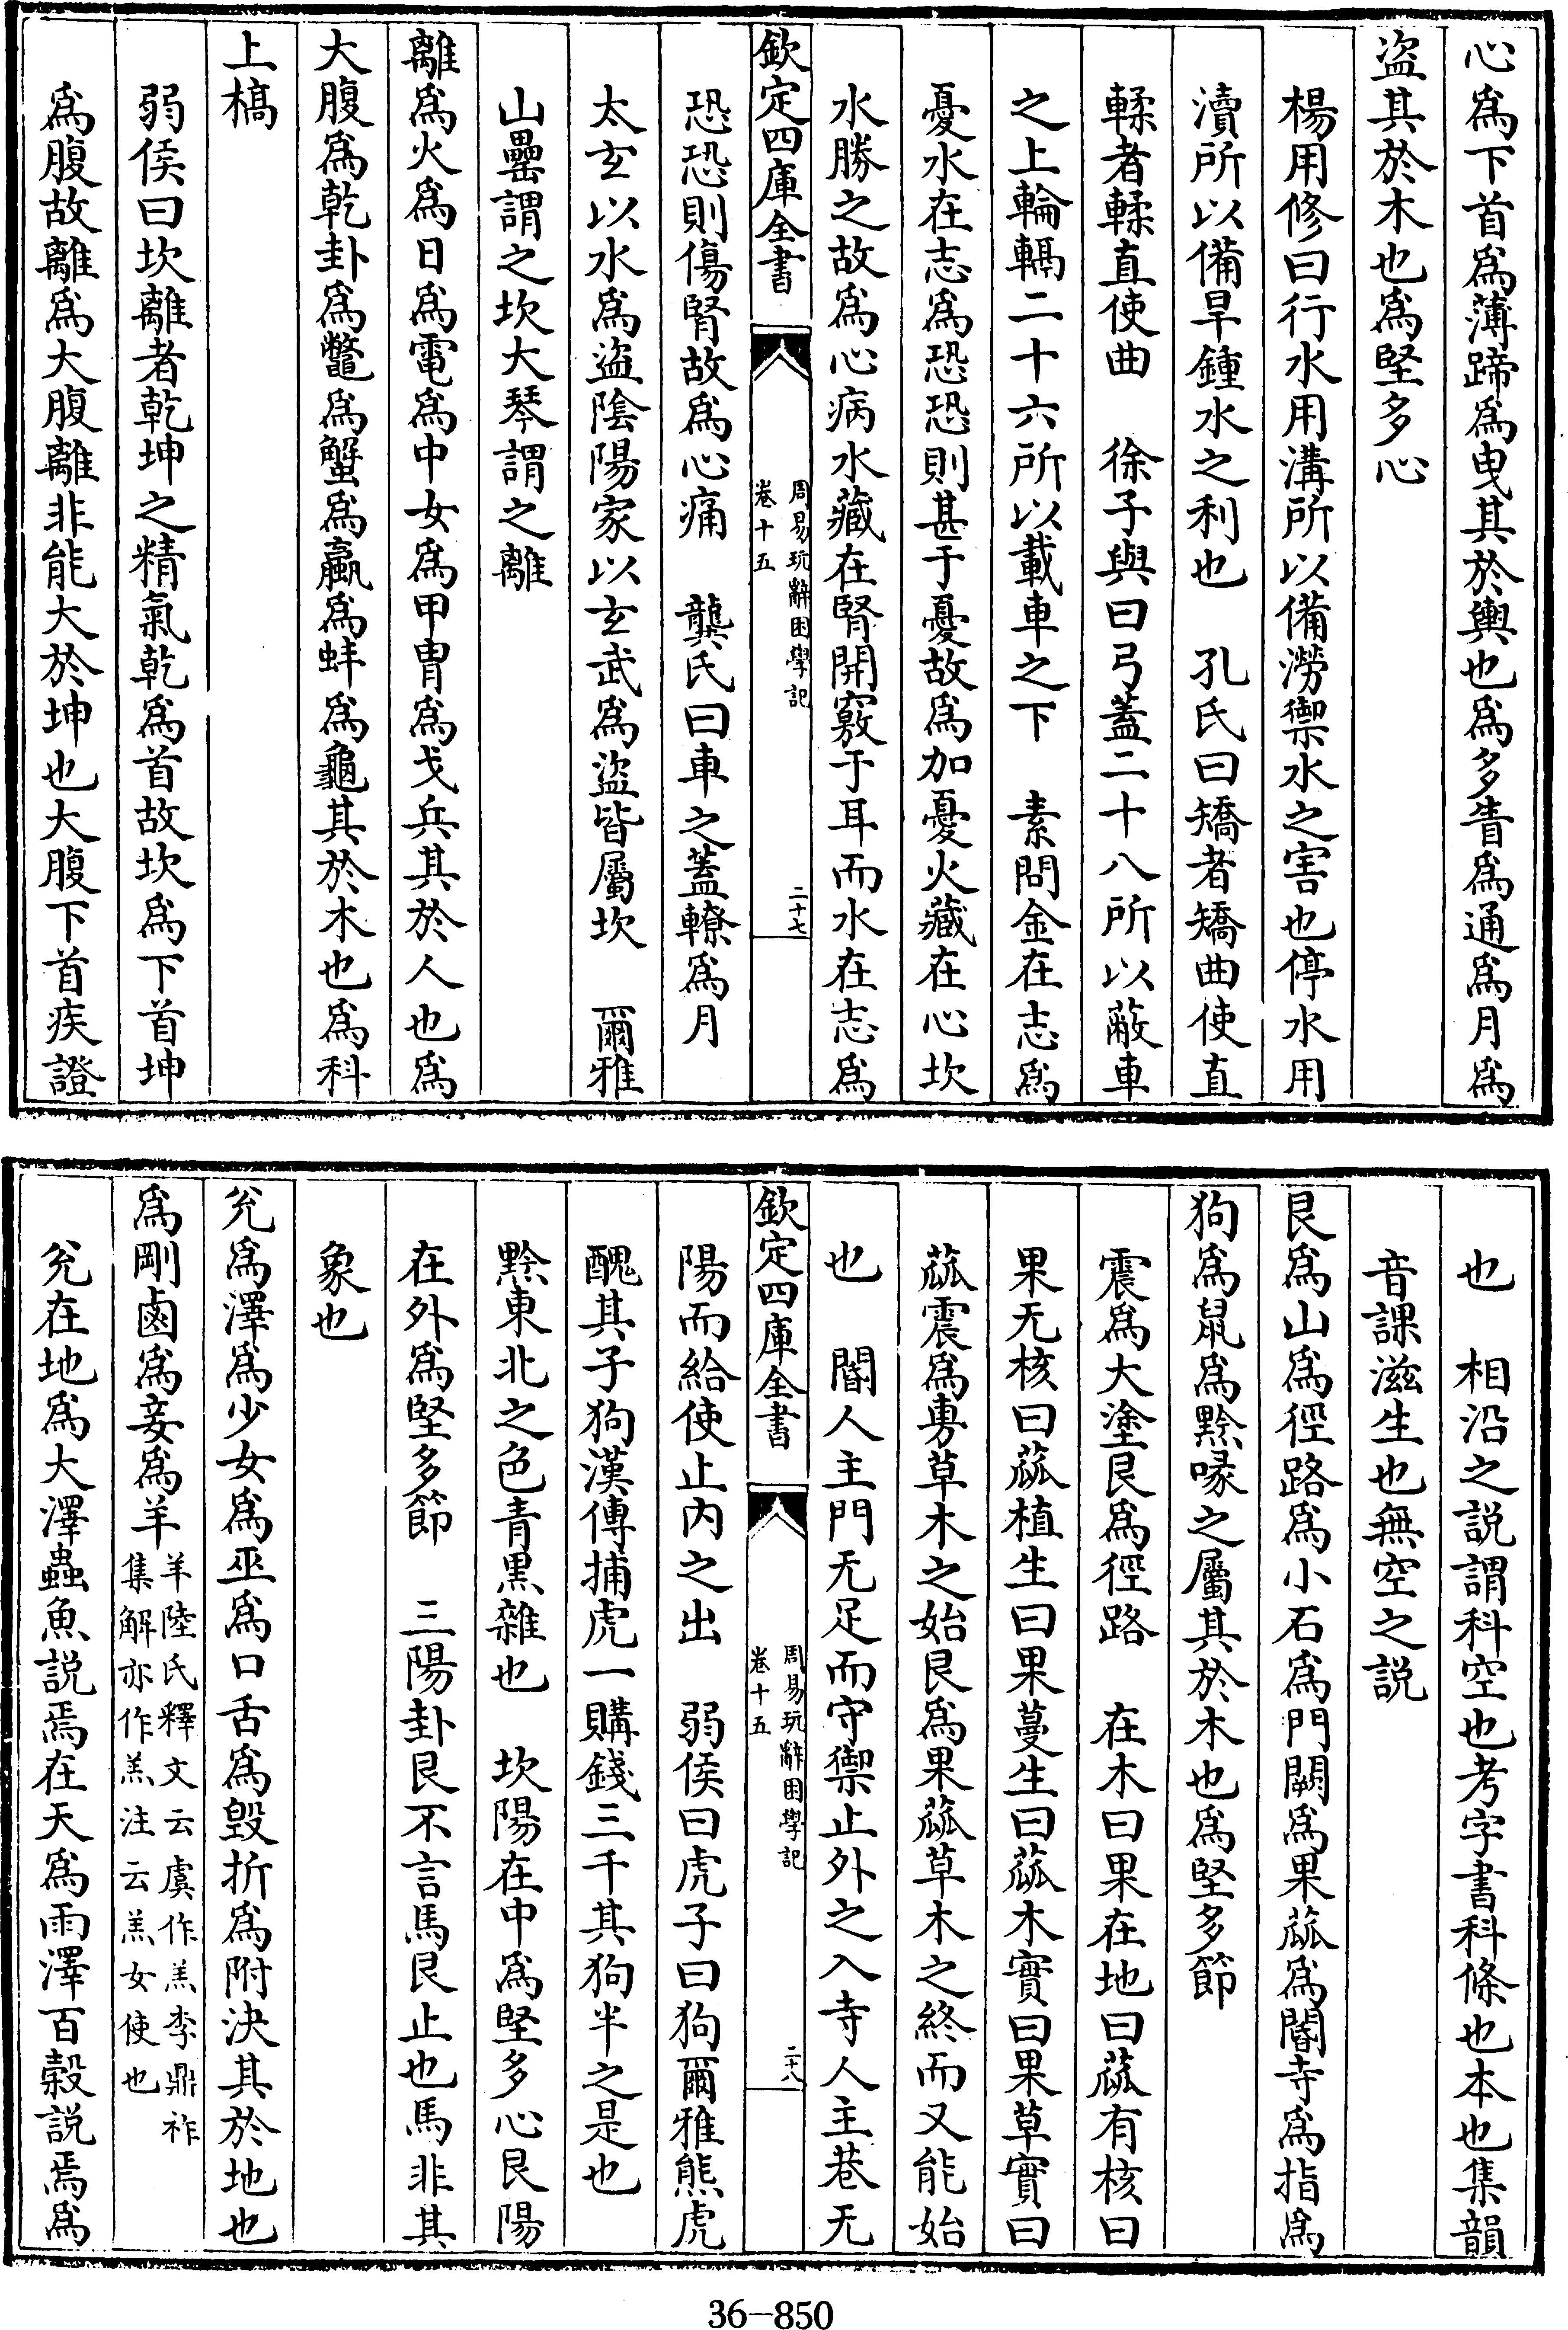 心為下首為薄蹄為曳其於輿也為多眚為通為月為
盜其於木也為堅多心
楊用修曰行水用溝所以備澇禦水之害也停水用
瀆所以備旱鍾水之利也　孔氏曰矯者矯曲使直
輮者輮直使曲　徐子與曰弓蓋二十八所以蔽車
之上輪輻二十六所以載車之下　素問金在志為
憂水在志為恐恐則甚于憂故為加憂火藏在心坎
水勝之故為心病水藏在腎開竅于耳而水在志為
欽定四庫全書
周易玩辭困學記
卷十五
二十七
恐恐則傷腎故為心痛　龔氏曰車之蓋轑為月
太玄以水為盜陰陽家以玄武為盜皆屬坎　爾雅
山罍謂之坎大琴謂之離
離為火為日為電為中女為甲胄為戈兵其於人也為
大腹為乾卦為鼈為蟹為蠃為蚌為龜其於木也為科
上槁
弱侯曰坎離者乾坤之精氣乾為首故坎為下首坤
為腹故離為大腹離非能大於坤也大腹下首疾證
也　相沿之説謂科空也考字書科條也本也集韻
音課滋生也無空之説
艮為山為徑路為小石為門闕為果蓏為閽寺為指為
狗為鼠為黔喙之屬其於木也為堅多節
震為大塗艮為徑路　在木曰果在地曰蓏有核曰
果无核曰蓏植生曰果蔓生曰蓏木實曰果草實曰
蓏震為旉草木之始艮為果蓏草木之終而又能始
也　閽人主門无足而守禦止外之入寺人主巷无
欽定四庫全書
周易玩辭困學記
卷十五
二十八
陽而給使止內之出　弱侯曰虎子曰狗爾雅熊虎
醜其子狗漢傳捕虎一購錢三千其狗半之是也
黔東北之色青黒雜也　坎陽在中為堅多心艮陽
在外為堅多節　三陽卦艮不言馬艮止也馬非其
象也
兊為澤為少女為巫為口舌為毀折為附決其於地也
為剛鹵為妾為羊羊陸氏釋文云虞作羔李鼎祚
集解亦作羔注云羔女使也
兊在地為大澤蟲魚説焉在天為雨澤百穀説焉為
36-850